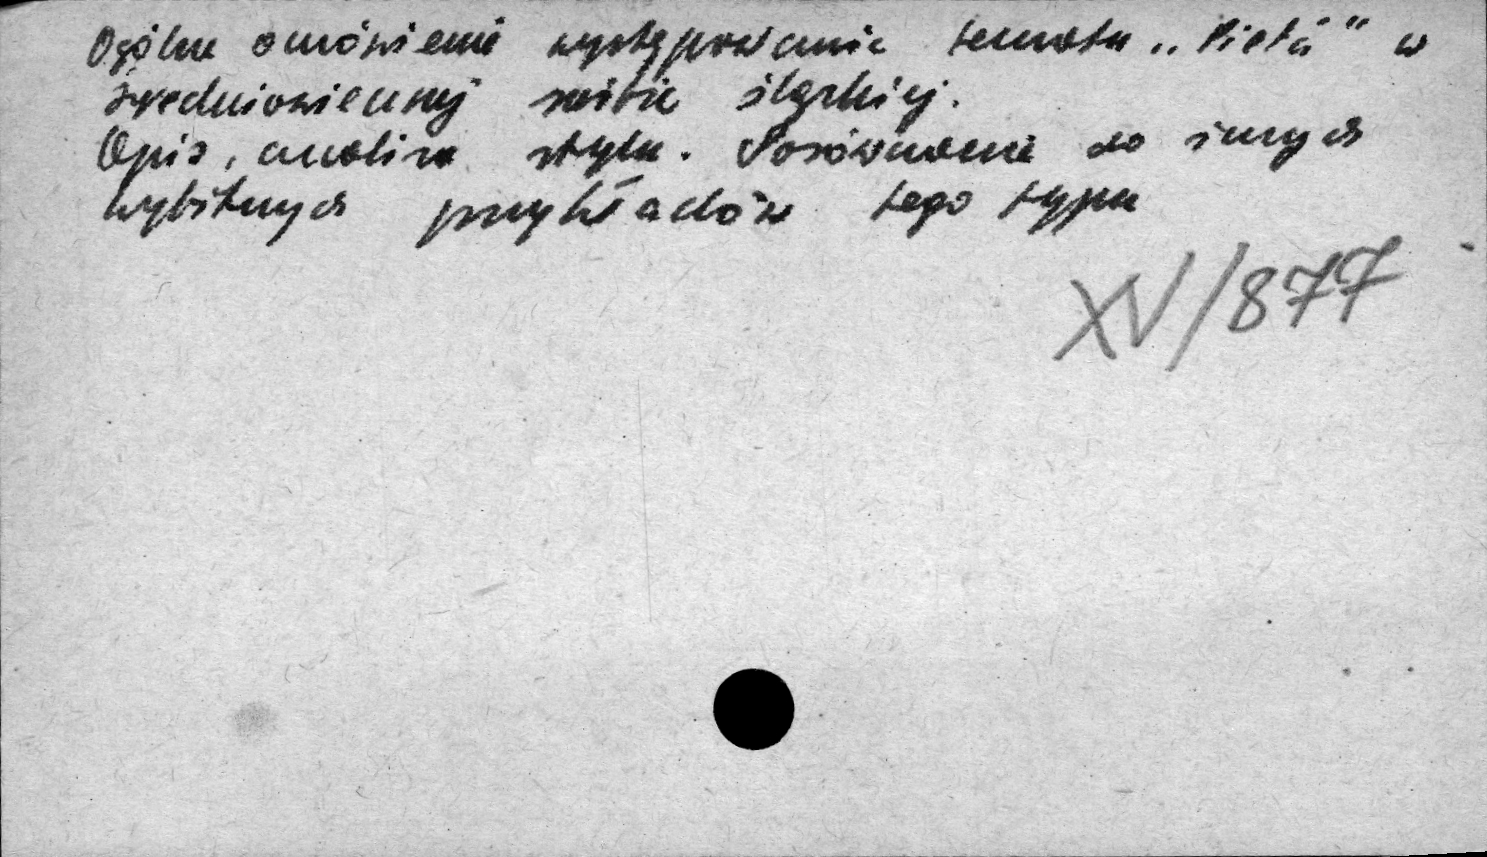 Ogólne omówienie występowania tematu „Pietá" w
średniowiecznej rzeźbie śląskiej.
Opis, analiza stylu. Porównanie do innych
wybitnych przykładów tego typu
XV/877